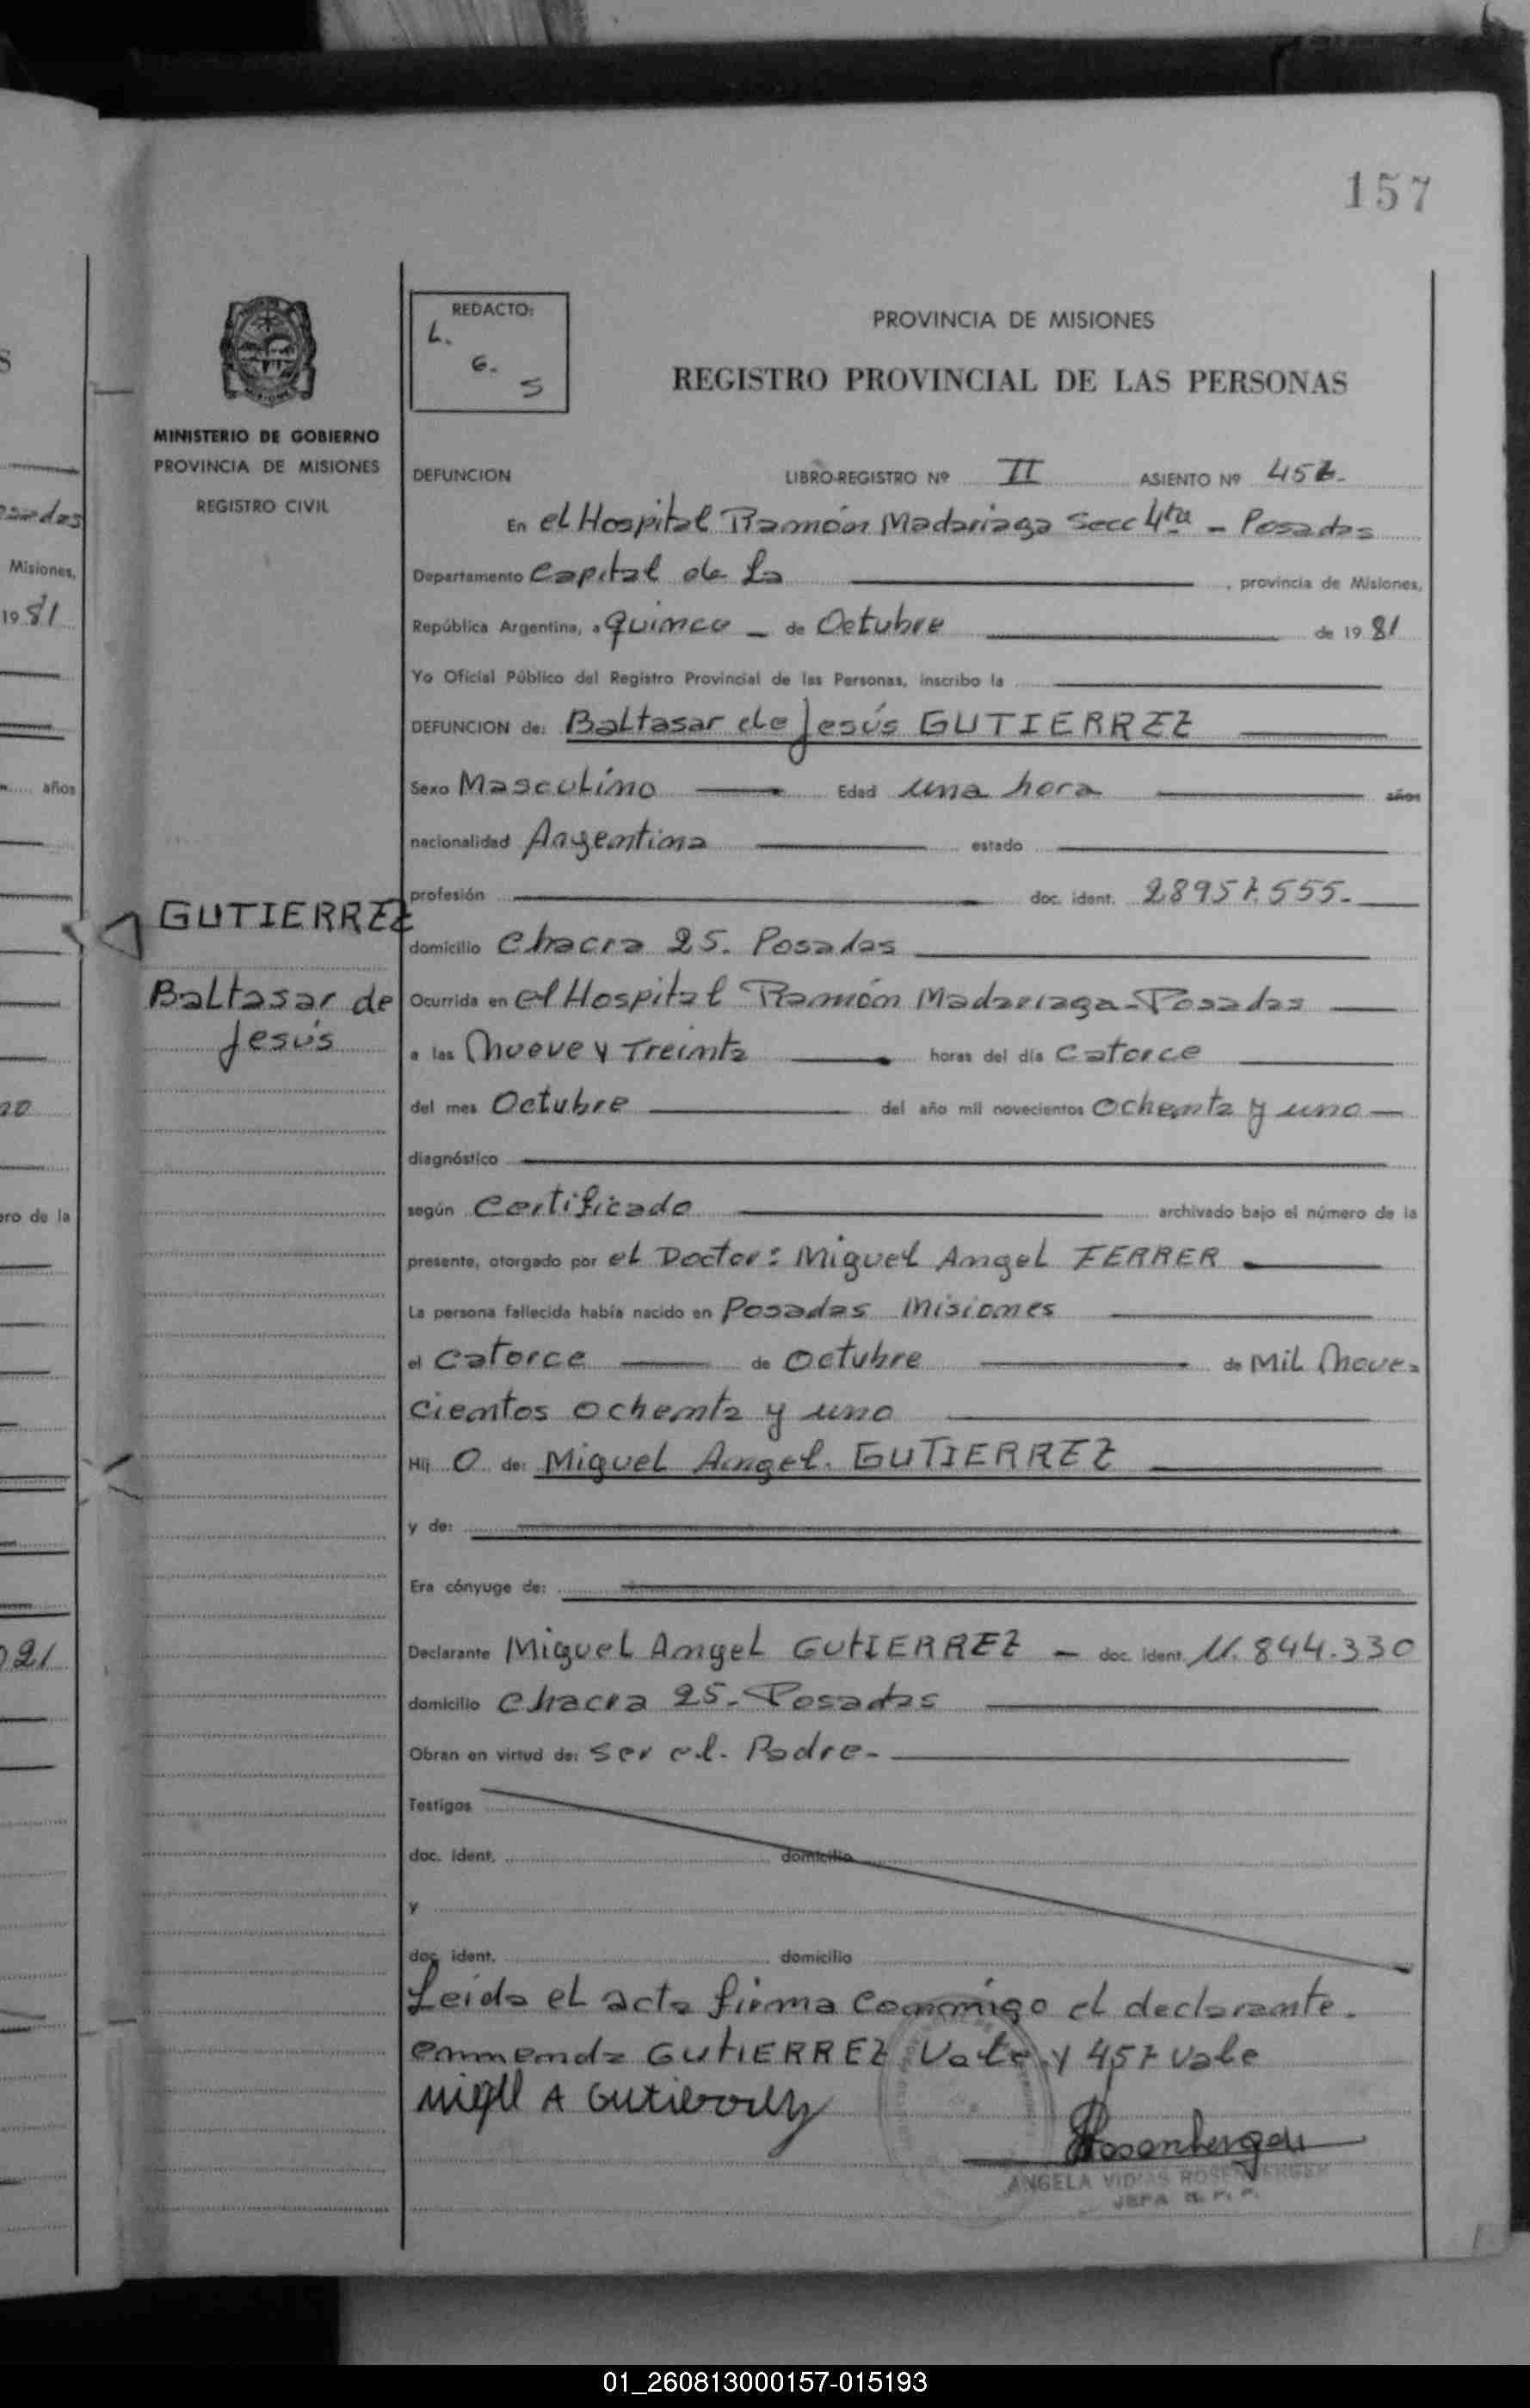 157
REDACTO:
L.
G.
S
PROVINCIA DE MISIONES
REGISTRO PROVINCIAL DE LAS PERSONAS
MINISTERIO DE GOBIERNO
PROVINCIA DE MISIONES
REGISTRO CIVIL
GUTIERREZ
Baltasar de
Jesús
DEFUNCION LIBRO-REGISTRO Nº II ASIENTO Nº 457.
En el Hospital Ramón Madariaga Secc 4ta - Posadas
Departamento Capital de La , provincia de Misiones,
República Argentina, a quince - de Octubre de 1981
Yo Oficial Público del Registro Provincial de las Personas, inscribo la
DEFUNCION de: Baltasar de Jesús GUTIERREZ
Sexo Masculino Edad una hora años
nacionalidad Argentina estado
profesión doc. ident. 28957.555.
domicilio Chacra 25. Posadas
Ocurrida en el Hospital Ramón Madariaga - Posadas
a las Nueve y Treinta horas del día Catorce
del mes Octubre del año mil novecientos Ochenta y uno
diagnóstico
según Certificado archivado bajo el número de la
presente, otorgado por el Doctor: Miguel Angel FERRER
La persona fallecida había nacido en Posadas Misiones
el Catorce de Octubre de Mil Nove-
cientos ochenta y uno
Hij O de: Miguel Angel. GUTIERREZ
y de:
Era cónyuge de:
Declarante Miguel Angel GUtIERREZ - doc. ident. 11.844.330
domicilio Chacra 25 - Posadas
Obran en virtud de: ser el. Padre-
Testigos
doc. ident. domicilio
y
doc. ident. domicilio
Leida el acta firma conmigo el declarante.
enmenda GUtIERREZ Vale y 457 Vale
Migll A Gutierrez
Rosenberger
ANGELA VIDMAS ROSENBERGER
JEFA R. P. P.
osadas
Misiones,
1981
años
ero de la
21
01_260813000157-015193